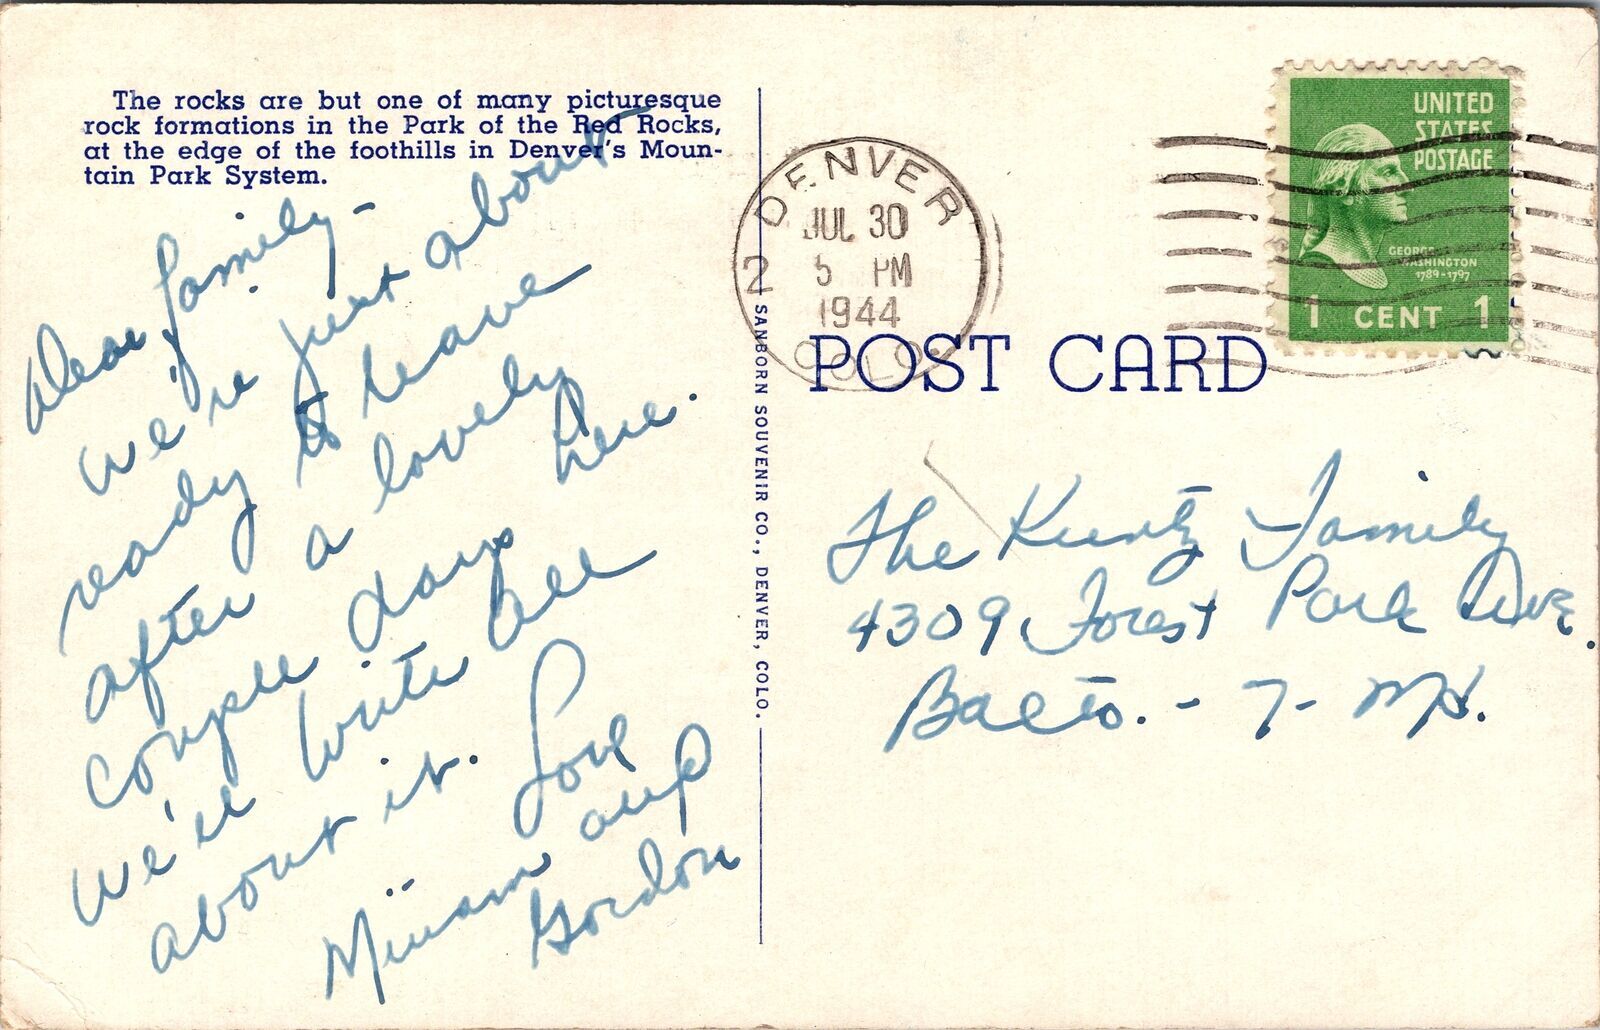 The rocks are but one of many picturesque
rock formations in the Park of the Red Rocks,
at the edge of the foothills in Denver's Moun-
tain Park System.
Dear family-
We're just about
ready to leave
after a lovely
couple days here.
We'll write all
about it. Love
Miriam and
Gordon
SANBORN SOUVENIR CO., DENVER, COLO.
DENVER
JUL 30
5 PM
1944
COLO.
2
UNITED
STATES
POSTAGE
GEORGE
WASHINGTON
1789-1797
1 CENT 1
POST CARD
The Kuntz Family
4309 Forest Park Ave.
Balto. - 7 - Md.